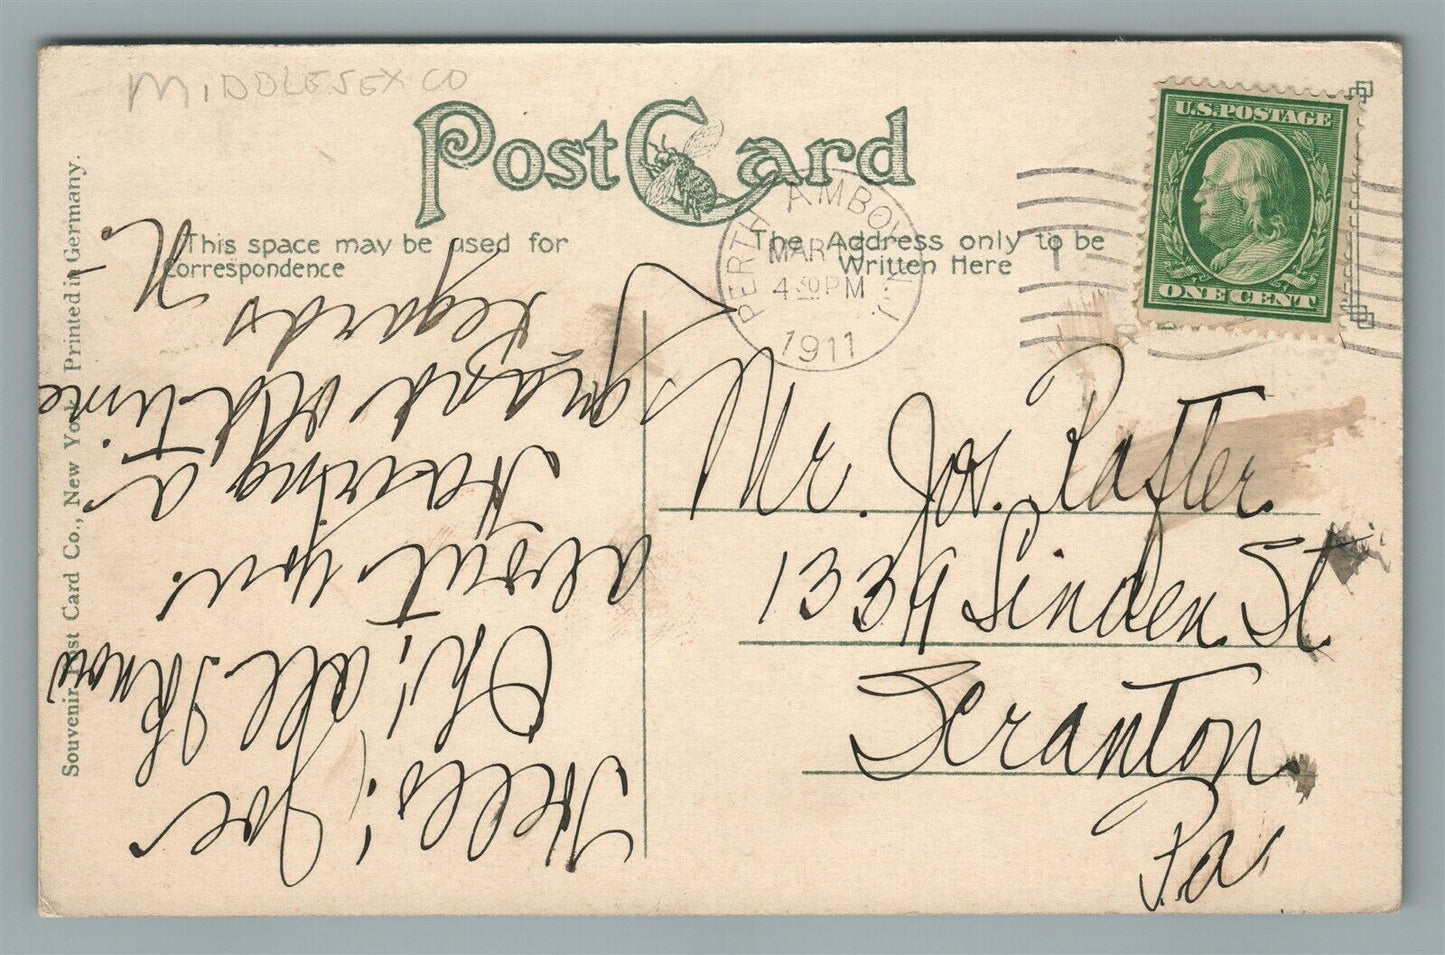 MIDDLESEX CO
Post Card
This space may be used for
Correspondence
The Address only to be
Written Here
PERTH AMBOY, N.J.
MAR 19
4 30 PM
1911
1
U.S. POSTAGE
ONE CENT
Mr. Jos. Rafter.
1339 Linden St
Scranton.
Pa
Hello! Joe
Oh! all I know
about you.
Having a
grand old time
regards
N.
Souvenir Post Card Co., New York Printed in Germany.